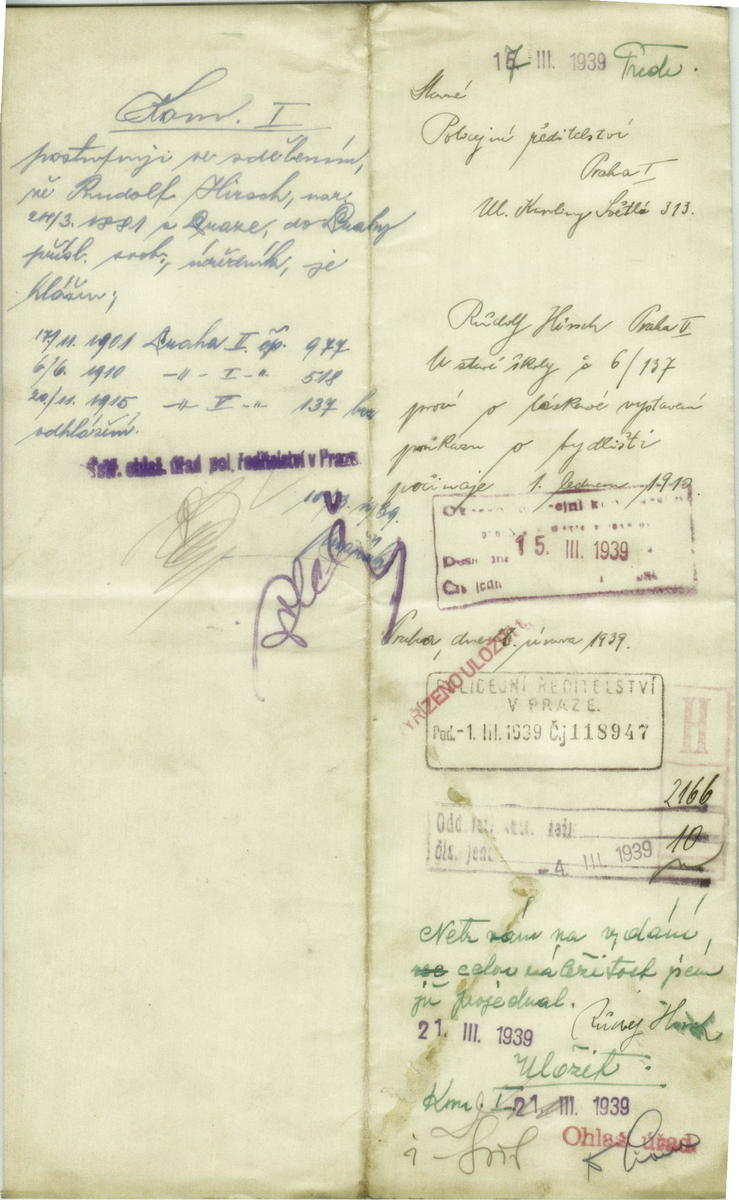 Kom. I
postupuji se sdělením,
že Rudolf Hirsch, nar.
24/3. 1881 v Praze, do Prahy
přísl. , úředník, je
hlášen;
17/11. 1901 Praha II. čp. 977
6/6. 1910 -"- I -"- 518
20/11. 1915 -"- V -"- 137 bez
odhlášení.
ohlaš. úřad pol. ředitelství v Praze
1939.
III. 1939
Slavné
Policejní ředitelství
Praha I
Ul. Karoliny Světlé 313.
Rudolf Hirsch Praha V
U staré školy č 6/137
prosí o laskavé vystavení
průkazu o bydlišti
počínaje 1. lednem 1910
15. III. 1939
Praha, dne února 1939.
VYŘÍZENO ULOŽIT
POLICEJNÍ ŘEDITELSTVÍ
V PRAZE.
Pod. -1. III. 1939 Čj 118947
H
2166
10
Odd.
čís. jedn. -4. III. 1939
Netrvám na vydání,
celou záležitost jsem
již projednal.
21. III. 1939 Hirsch
Uložit.
Kom. I. 21. III. 1939
Ohlaš. úřad